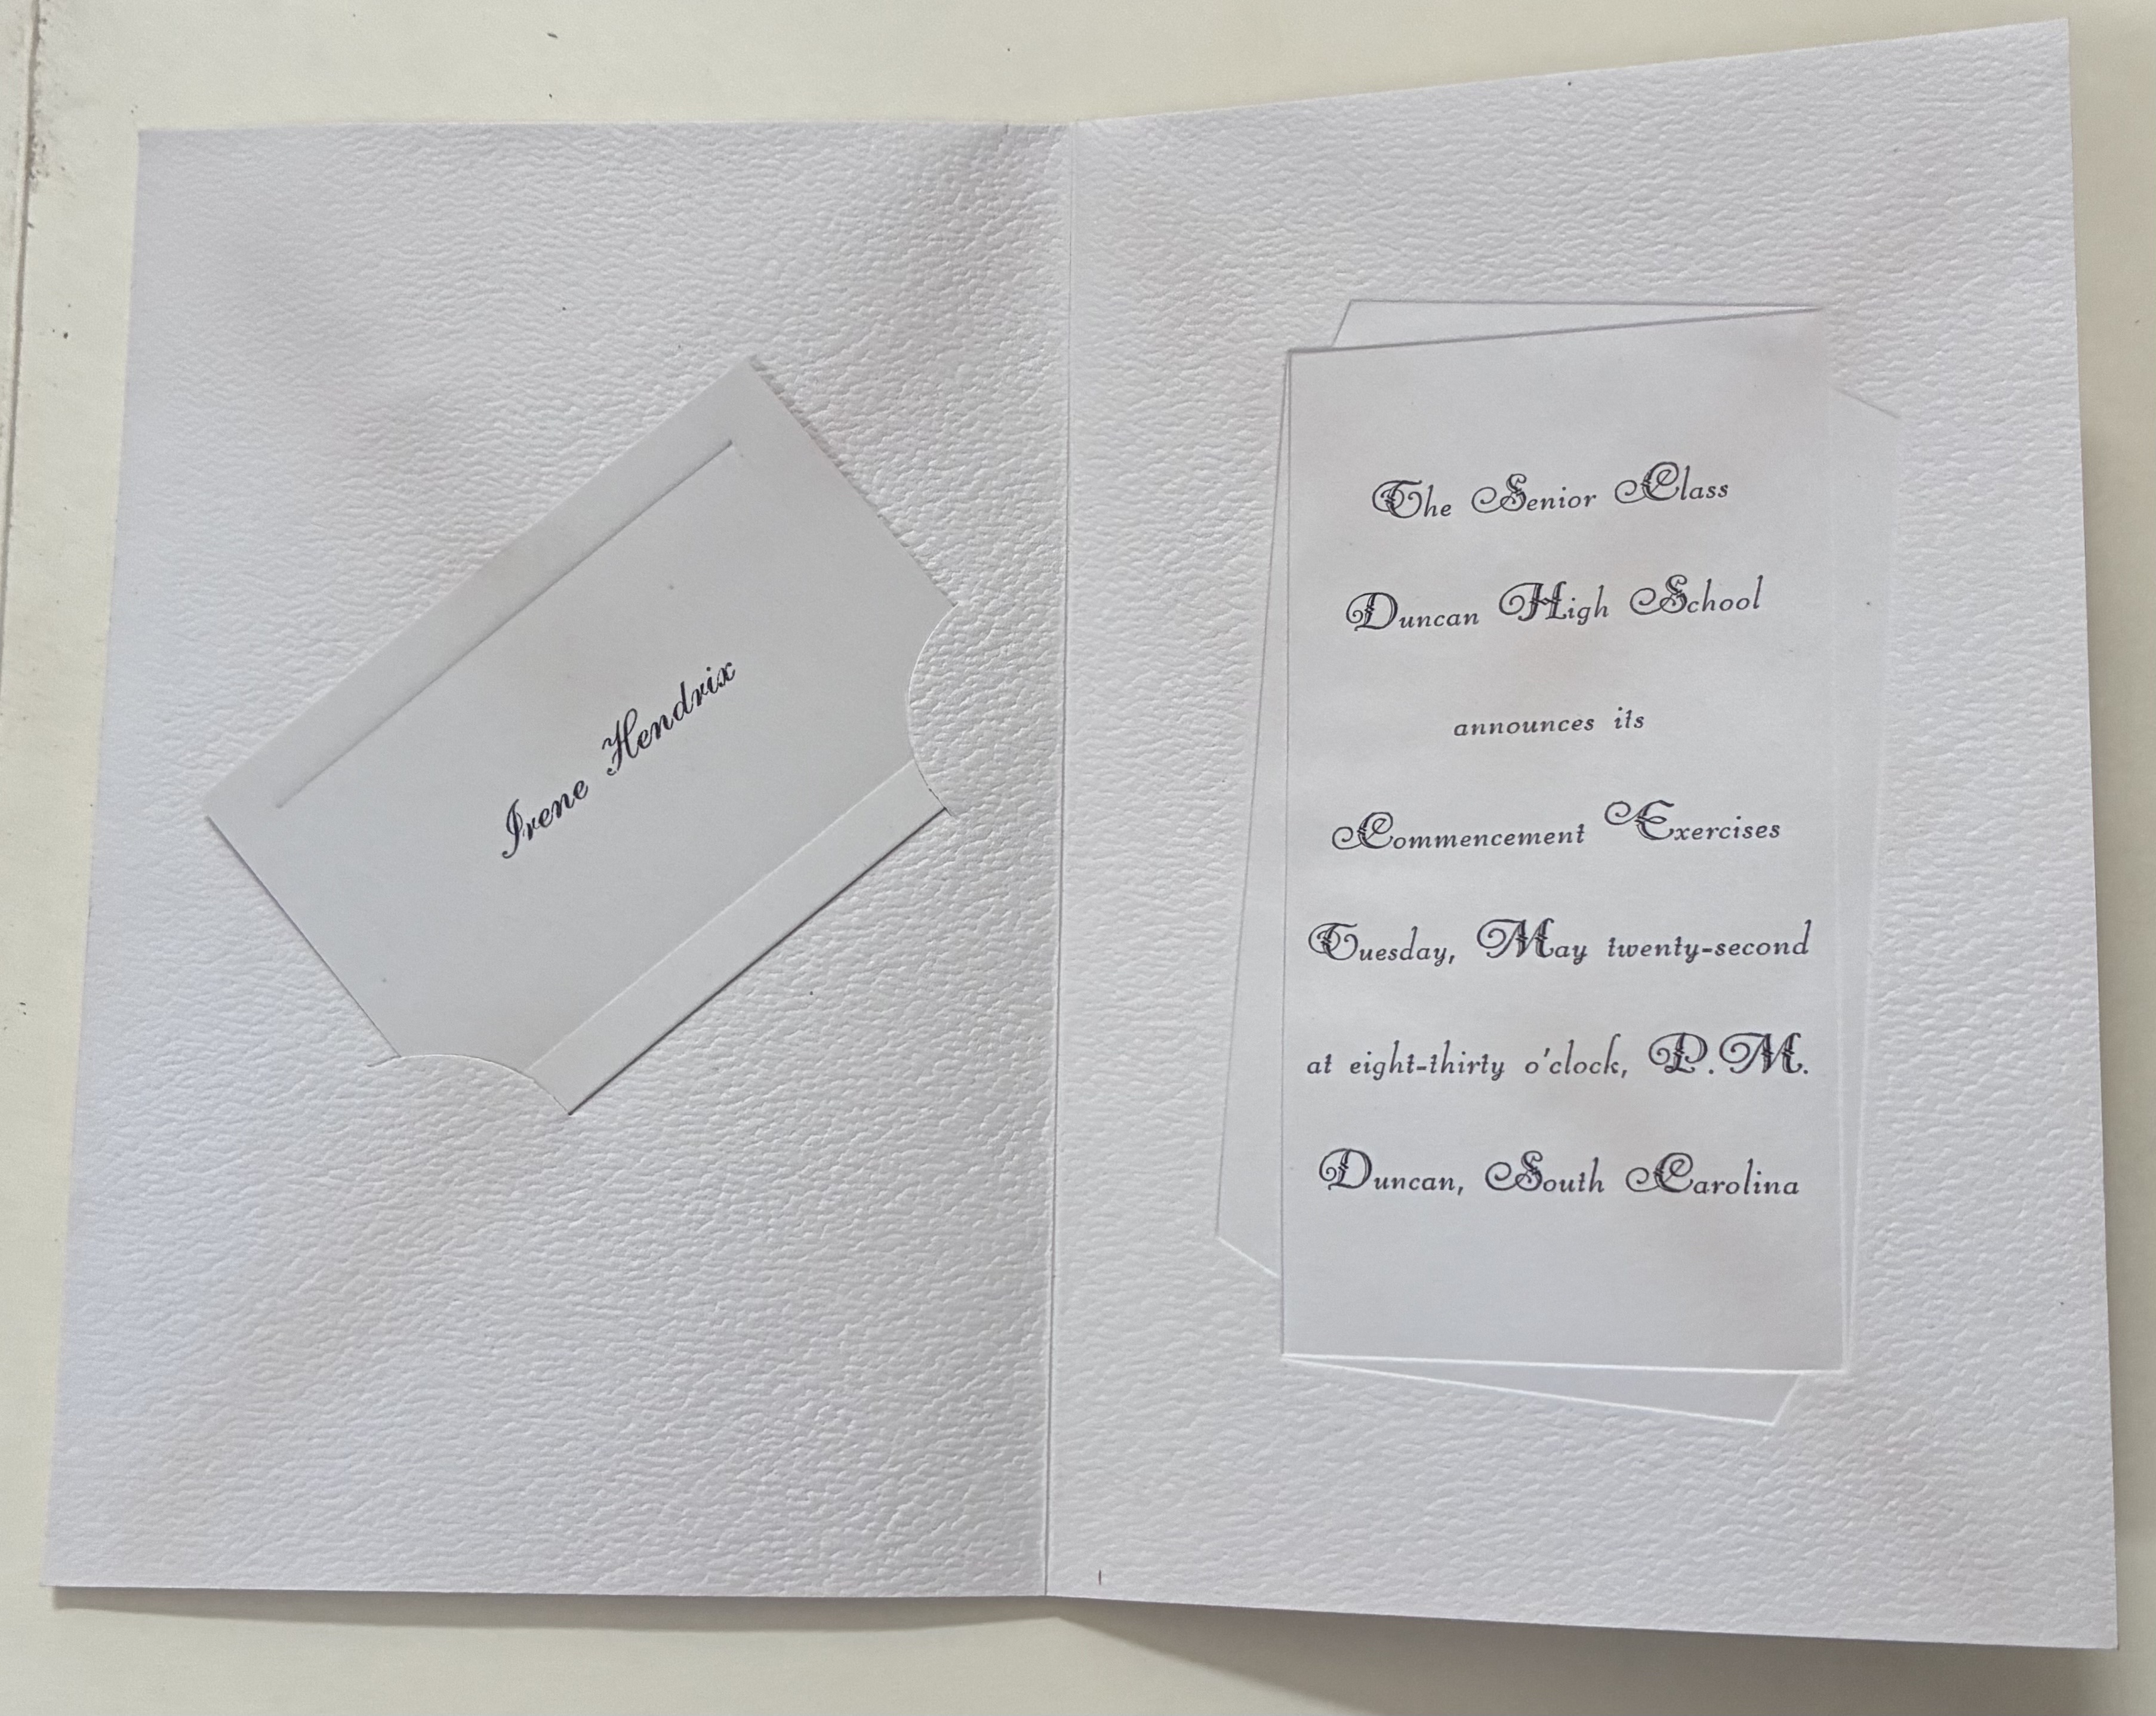 Irene Hendrix
The Senior Class
Duncan High School
announces its
Commencement Exercises
Tuesday, May twenty-second
at eight-thirty o'clock, P.M.
Duncan, South Carolina